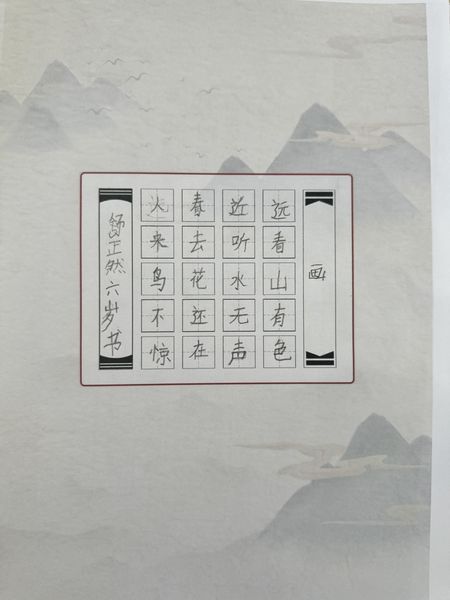 画
远看山有色
近听水无声
春去花还在
人来鸟不惊
舒正然六岁书